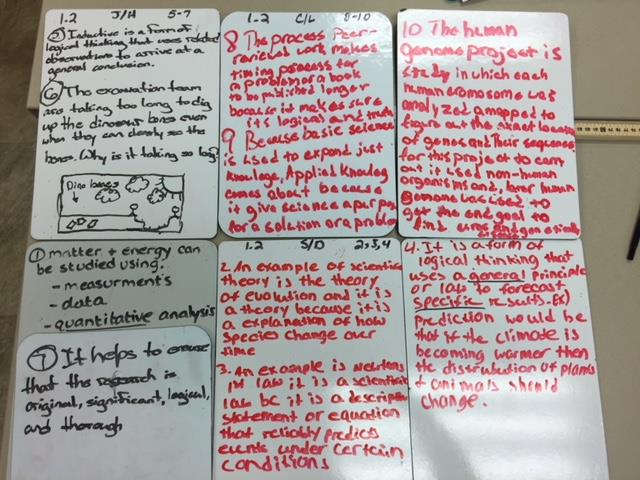 1.2 J/H 5-7
⑤ Inductive is a form of
logical thinking that uses related
observations to arrive at a
general conclusion.
⑥ The excavation team
are taking too long to dig
up the dinosaur bones even
when they can see the
bones. Why is it taking so long?
Dino bones
1.2 C/L 8-10
8 The process Peer-
reviewed work makes
timing process for
a problem or a book
to be published longer
because it makes sure
it's logical and truth
9 Because basic science
is used to expand just
knowlage, Applied Knowlag
comes about because
it give science a purpose
for a solution or a problem
10 The human
genome project is
study in which each
human cromosome was
analyzed & mapped to
figure out the exact
of genes and their sequences
for this project to carry
out it used non-human
organisms and, later human
was used to
get the end goal to
find
① matter + energy can
be studied using.
- measurments
- data
- quantitative analysis
⑦ It helps to
that the research is
original, significant, logical,
and thorough
1.2 S/D 2,3,4
2. An example of scientific
theory is the theory
of evolution and it is
a theory because it is
a explanation of how
species change over
time
3. An example is newtons
1st law it is a scientific
law bc it is a descriptive
statement or equation
that reliably predicts
events under certain
conditions
4. It is a form of
logical thinking that
uses a general principle
or law to forecast
specific results. Ex)
prediction would be
that if the climate is
becoming warmer then
the dissrubution of plants
+ animals should
change.